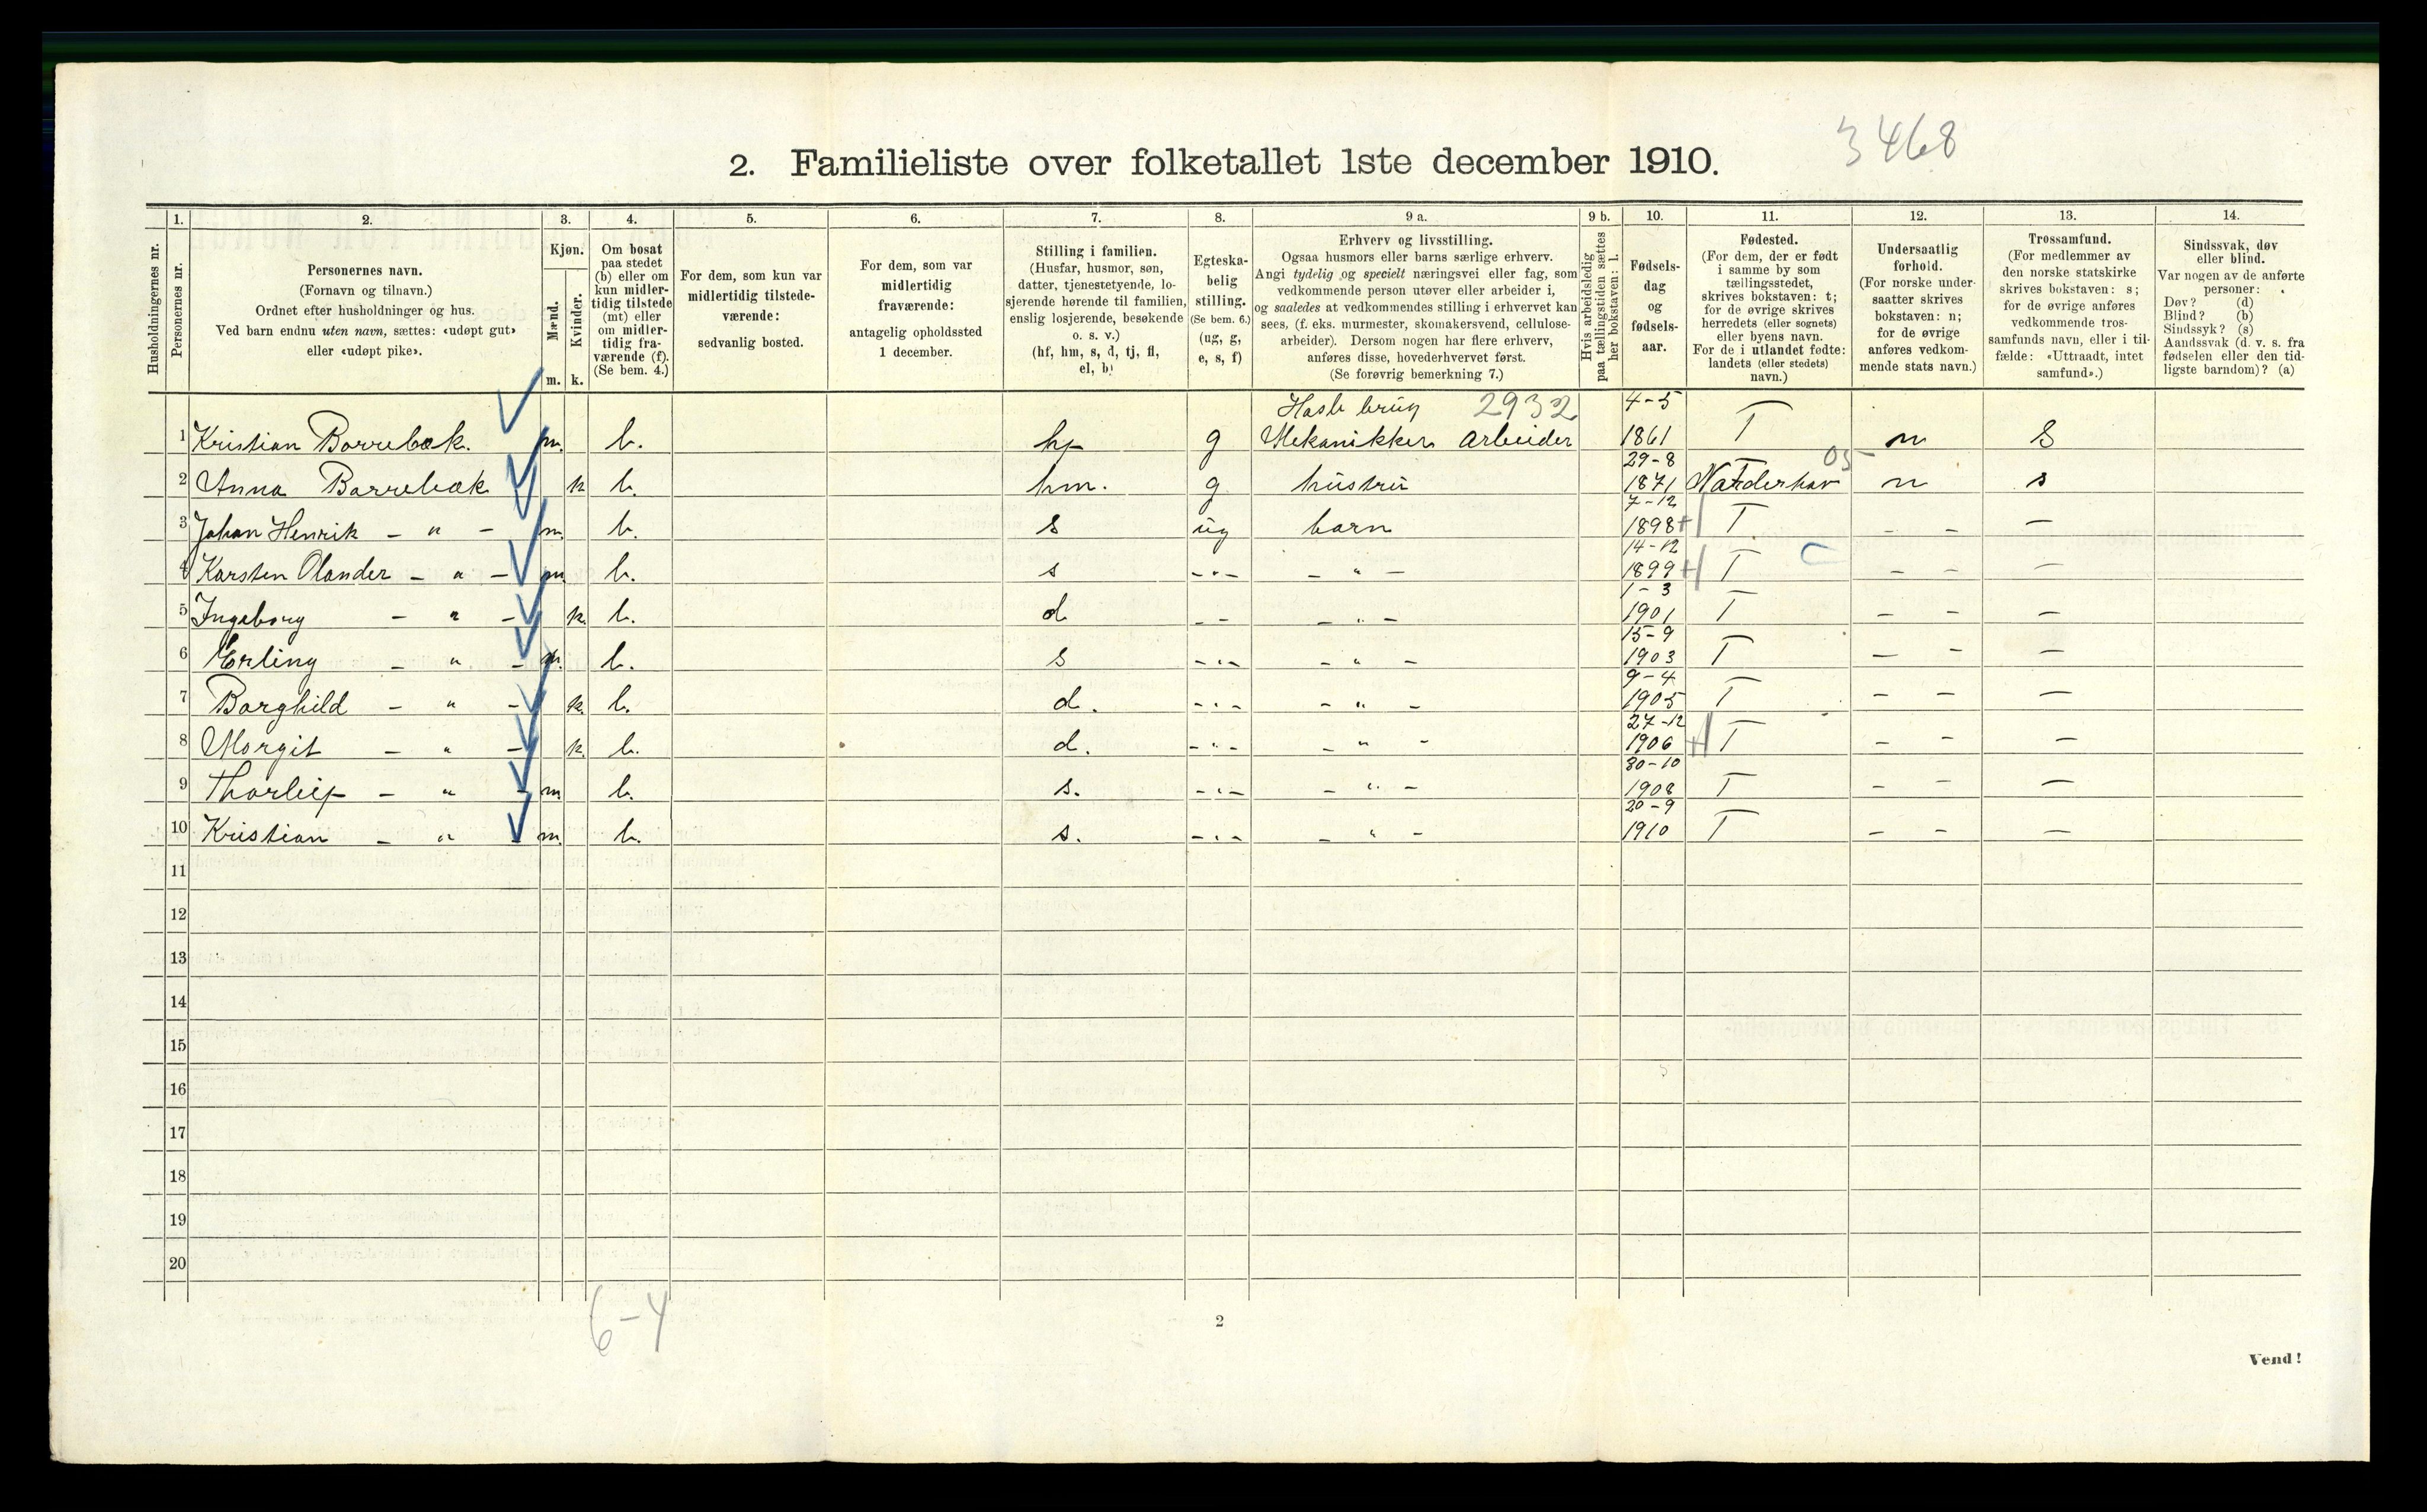 3468
2. Familieliste over folketallet 1ste december 1910.
Husholdningernes nr.
1. Personernes nr.
2. Personernes navn.
(Fornavn og tilnavn.)
Ordnet efter husholdninger og hus.
Ved barn endnu uten navn, sættes: «udøpt gut»
eller «udøpt pike».
3. Kjøn.
Mænd. m.
Kvinder. k.
4. Om bosat
paa stedet
(b) eller om
kun midler-
tidig tilstede
(mt) eller
om midler-
tidig fra-
værende (f).
(Se bem. 4.)
5. For dem, som kun var
midlertidig tilstede-
værende:
sedvanlig bosted.
6. For dem, som var
midlertidig
fraværende:
antagelig opholdssted
1 december.
7. Stilling i familien.
(Husfar, husmor, søn,
datter, tjenestetyende, lo-
sjerende hørende til familien,
enslig losjerende, besøkende
o. s. v.)
(hf, hm, s, d, tj, fl,
el, b)
8. Egteska-
belig
stilling.
(Se bem. 6.)
(ug, g,
e, s, f)
9 a. Erhverv og livsstilling.
Ogsaa husmors eller barns særlige erhverv.
Angi tydelig og specielt næringsvei eller fag, som
vedkommende person utøver eller arbeider i,
og saaledes at vedkommendes stilling i erhvervet kan
sees, (f. eks. murmester, skomakersvend, cellulose-
arbeider). Dersom nogen har flere erhverv,
anføres disse, hovederhvervet først.
(Se forøvrig bemerkning 7.)
9 b. Hvis arbeidsledig
paa tællingstiden sættes
her bokstaven: l.
10. Fødsels-
dag
og
fødsels-
aar.
11. Fødested.
(For dem, der er født
i samme by som
tællingsstedet,
skrives bokstaven: t;
for de øvrige skrives
herredets (eller sognets)
eller byens navn.
For de i utlandet fødte:
landets (eller stedets)
navn.)
12. Undersaatlig
forhold.
(For norske under-
saatter skrives
bokstaven: n;
for de øvrige
anføres vedkom-
mende stats navn.)
13. Trossamfund.
(For medlemmer av
den norske statskirke
skrives bokstaven: s;
for de øvrige anføres
vedkommende tros-
samfunds navn, eller i til-
fælde: «Uttraadt, intet
samfund».)
14. Sindssvak, døv
eller blind.
Var nogen av de anførte
personer:
Døv? (d)
Blind? (b)
Sindssyk? (s)
Aandssvak (d. v. s. fra
fødselen eller den tid-
ligste barndom)? (a)
Hasle brug 2932 4-5
1 Kristian Borrebæk. m. b. hf g Mekanikker Arbeider 1861 T n S
29-8 05
2 Anna Borrebæk k b. hm. g hustru 1871 Narderhav n s
7-12
3 Johan Henrik - " - m. b. s ug barn 1898 T - - -
14-12
4 Karsten Olander - " - m. b. s - " - - " - 1899 T - - -
1-3
5 Ingeborg - " - k. b. d - - - " - 1901 T - - -
15-9
6 Erling - " - m. b. s - " - - " - 1903 T - - -
9-4
7 Borghild - " - k. b. d. - " - - " - 1905 T - - -
27-12
8 Margit - " - k. b. d. - " - - " - 1906 T - - -
30-10
9 Thorleif - " - m b. s. - " - - " - 1908 T - - -
20-9
10 Kristian - " m. b. s. - " - - " - 1910 T - - -
11
12
13
14
15
16
17
18
19
20
6-4
2
Vend!